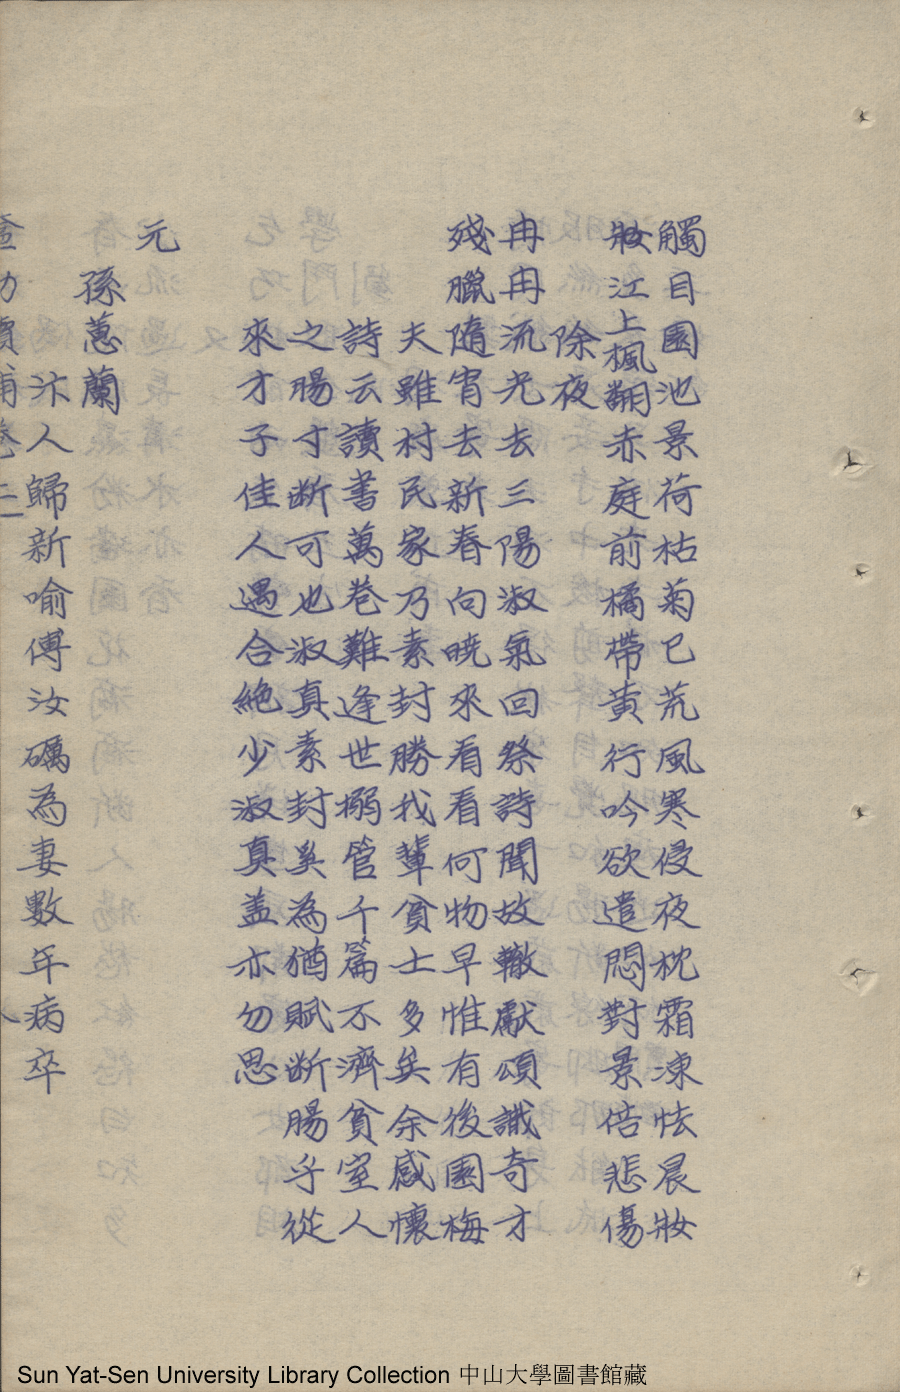 觸目園池景荷枯菊已荒風寒侵夜枕霜凍怯晨妝
妝江上楓翻赤庭前橘帶黄行吟欲遣悶對景倍悲傷
除夜
冉冉流光去三陽淑氣回祭詩聞故轍獻頌識奇才
殘臘隨宵去新春向曉來看看何物早惟有後園梅
夫雖村民家乃素封勝我輩貧士多矣余感懷
詩云讀書萬卷難逢世搦管千篇不濟貧室人
之腸寸断可也淑真素封奚為猶賦断腸乎從
來才子佳人遇合絶少淑真盖亦勿思
元
孫蕙蘭
汴人歸新喻傅汝礪為妻數年病卒
Sun Yat-Sen University Library Collection 中山大學圖書館藏